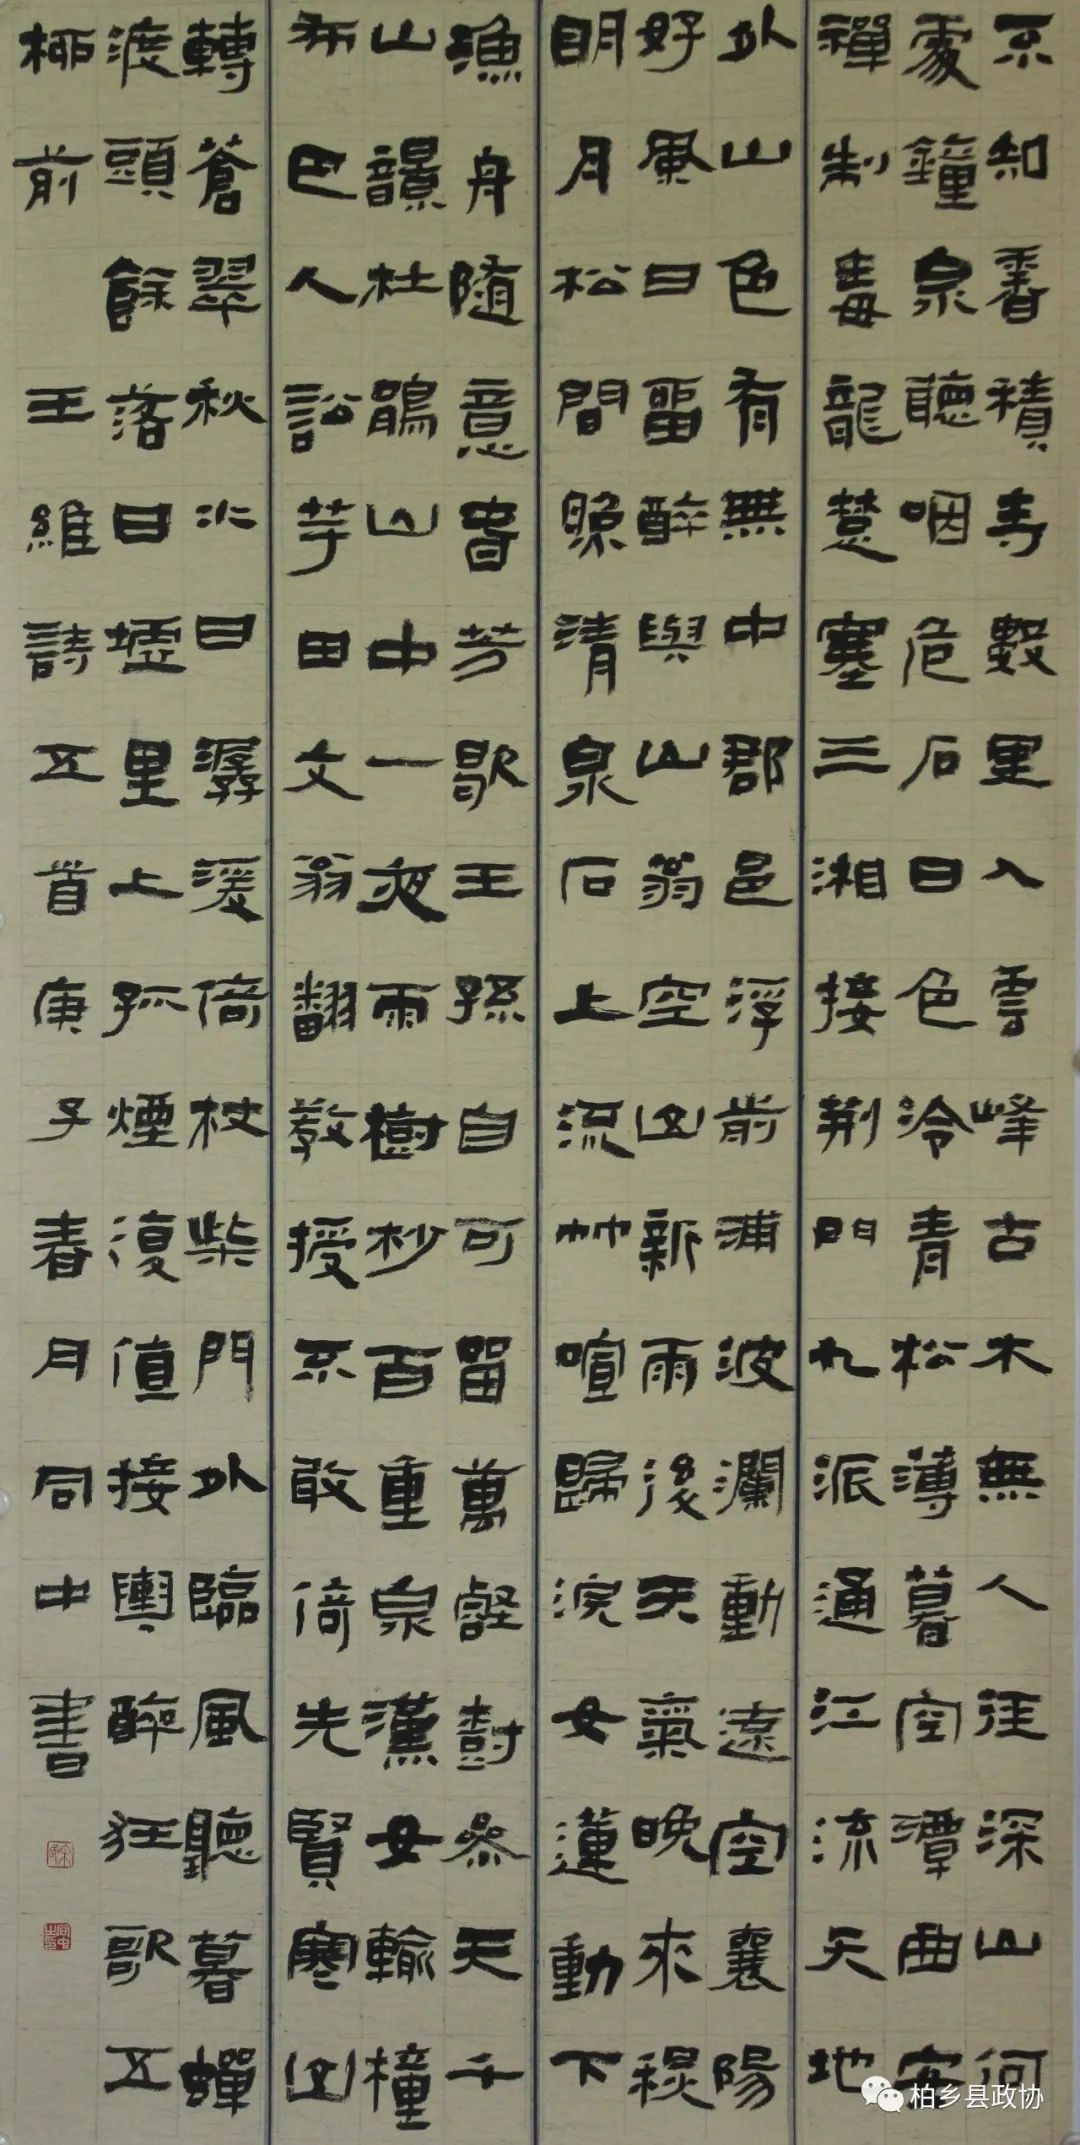 不知香積寺數里入雲峰古木無人徑深山何
處鐘泉聽咽危石日色冷青松薄暮空潭曲安
禪制毒龍楚塞三湘接荊門九派通江流天地
外山色有無中郡邑浮前浦波瀾動遠空襄陽
好風日留醉與山翁空山新雨後天氣晚來秋
明月松間照清泉石上流竹喧歸浣女蓮動下
漁舟隨意春芳歇王孫自可留萬壑樹參天千
山響杜鵑山中一夜雨樹杪百重泉漢女輸橦
布巴人訟芋田文翁翻教授不敢倚先賢寒山
轉蒼翠秋水日潺湲倚杖柴門外臨風聽暮蟬
渡頭餘落日墟里上孤煙復值接輿醉狂歌五
柳前 王維詩五首庚子春月同中書
柏乡县政协